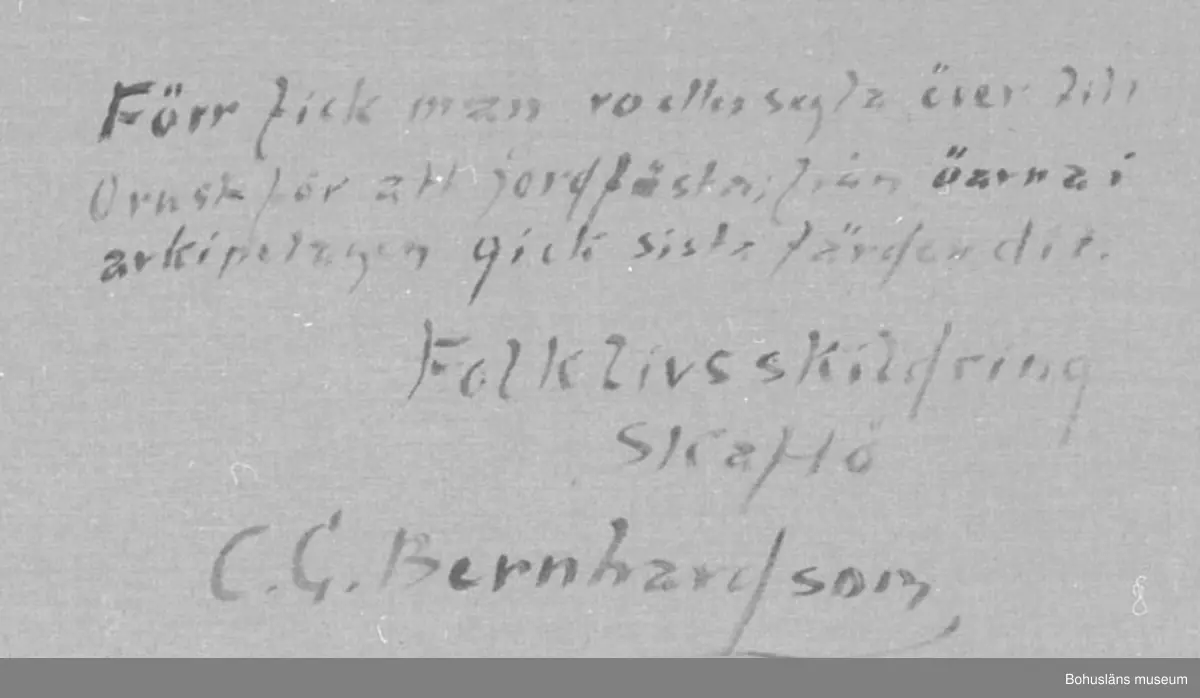 Förr fick man ro eller segla över till
Ornst för att jordfästa; från öarna i
arkipelagen gick sista färden dit.
Folklivsskildring
Skaftö
C.G. Bernhardson
Bohusläns museum